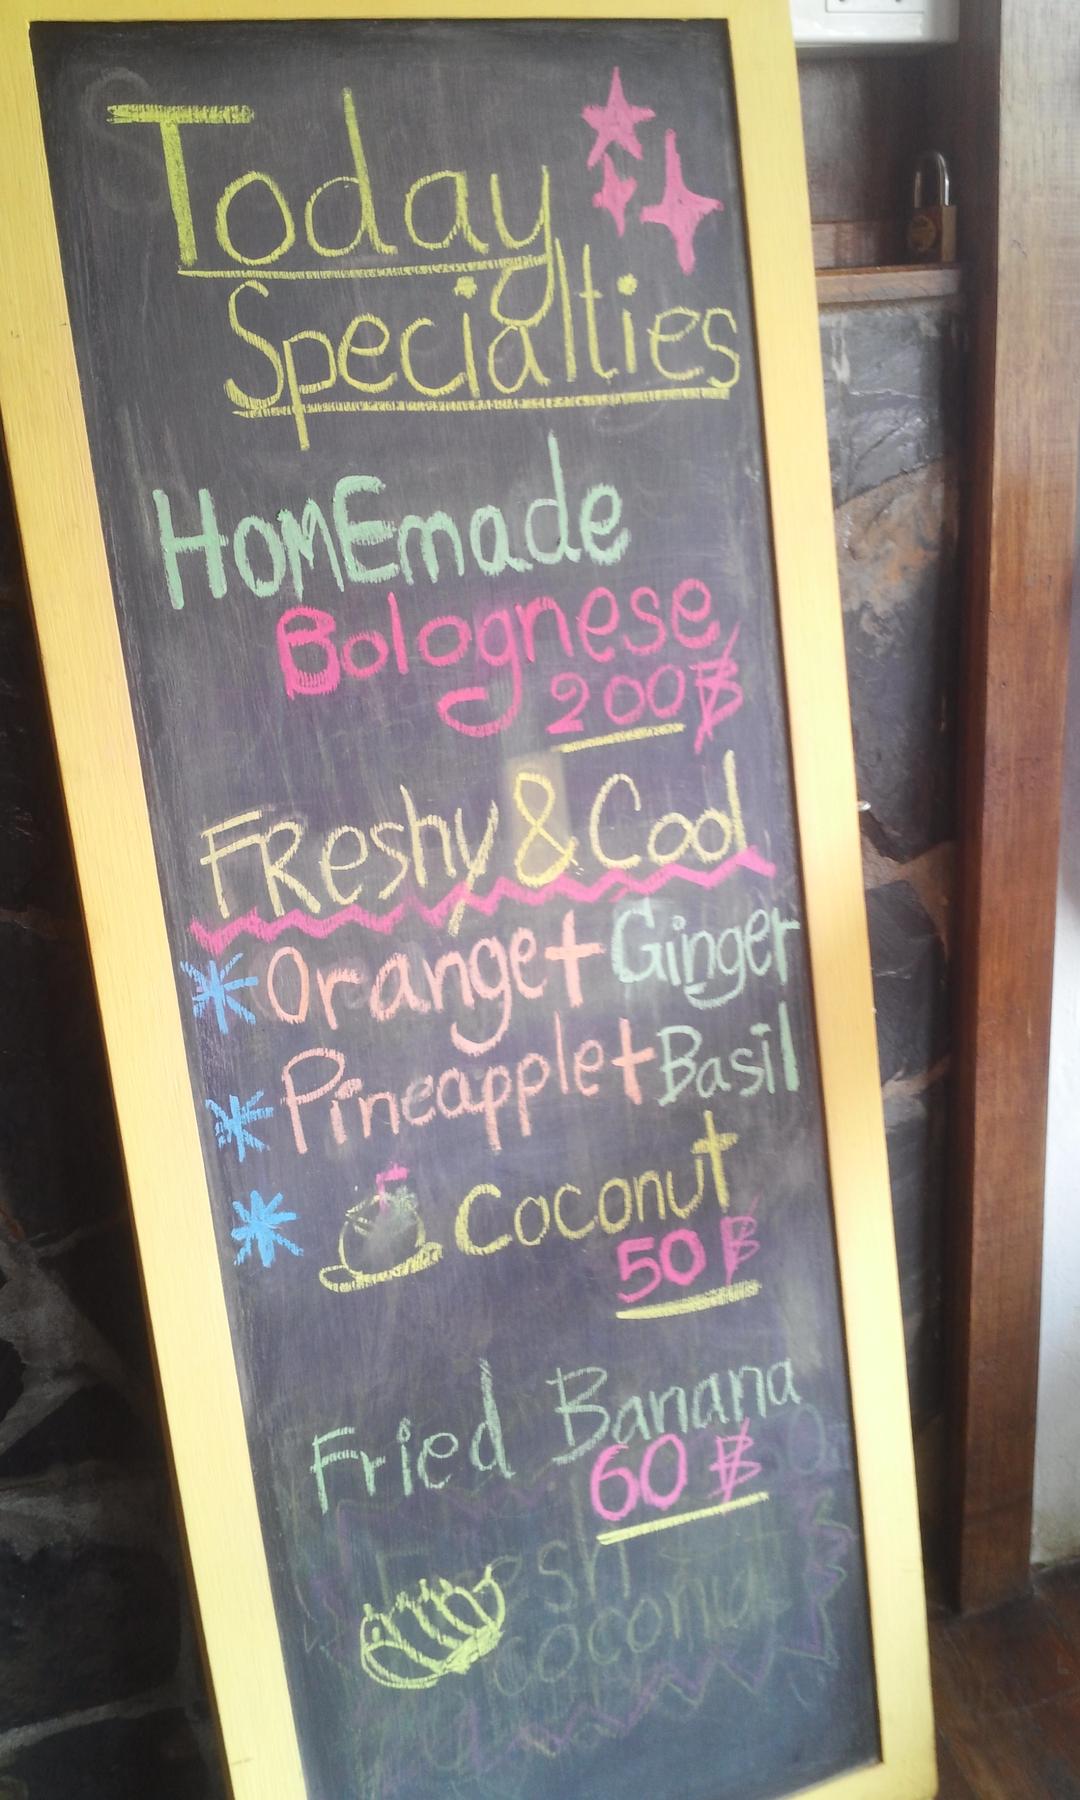 Today
Specialties
HOMEmade
Bolognese
200฿
FReshy & Cool
Orange + Ginger
Pineapple + Basil
Coconut
50 ฿
Fried Banana
60 ฿
Fresh
coconut